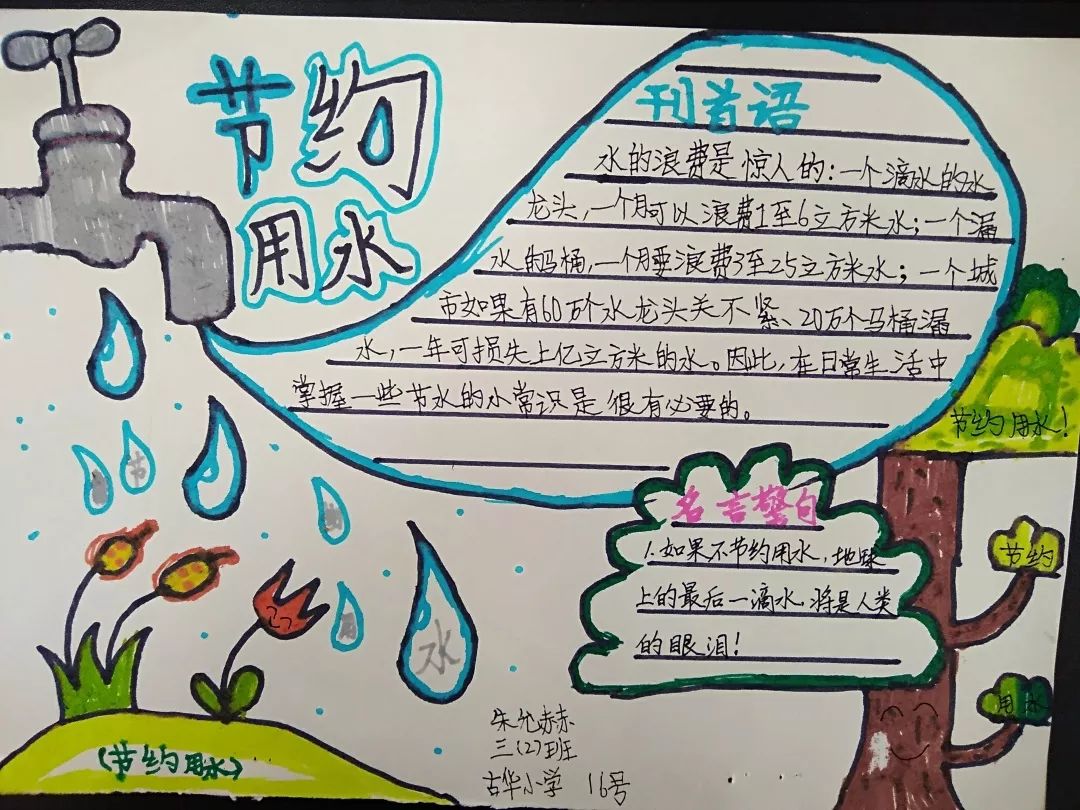 节约
用水
刊首语
水的浪费是惊人的:一个滴水的水
龙头,一个月可以浪费1至6立方米水;一个漏
水的马桶,一个月要浪费3至25立方米水;一个城
市如果有60万个水龙头关不紧、20万个马桶漏
水,一年可损失上亿立方米的水。因此,在日常生活中
掌握一些节水的小常识是很有必要的。
节约用水!
名言警句
1.如果不节约用水,地球
上的最后一滴水,将是人类
的眼泪!
节约
用水
节
用
水
(节约用水)
三(2)班
古华小学 16号